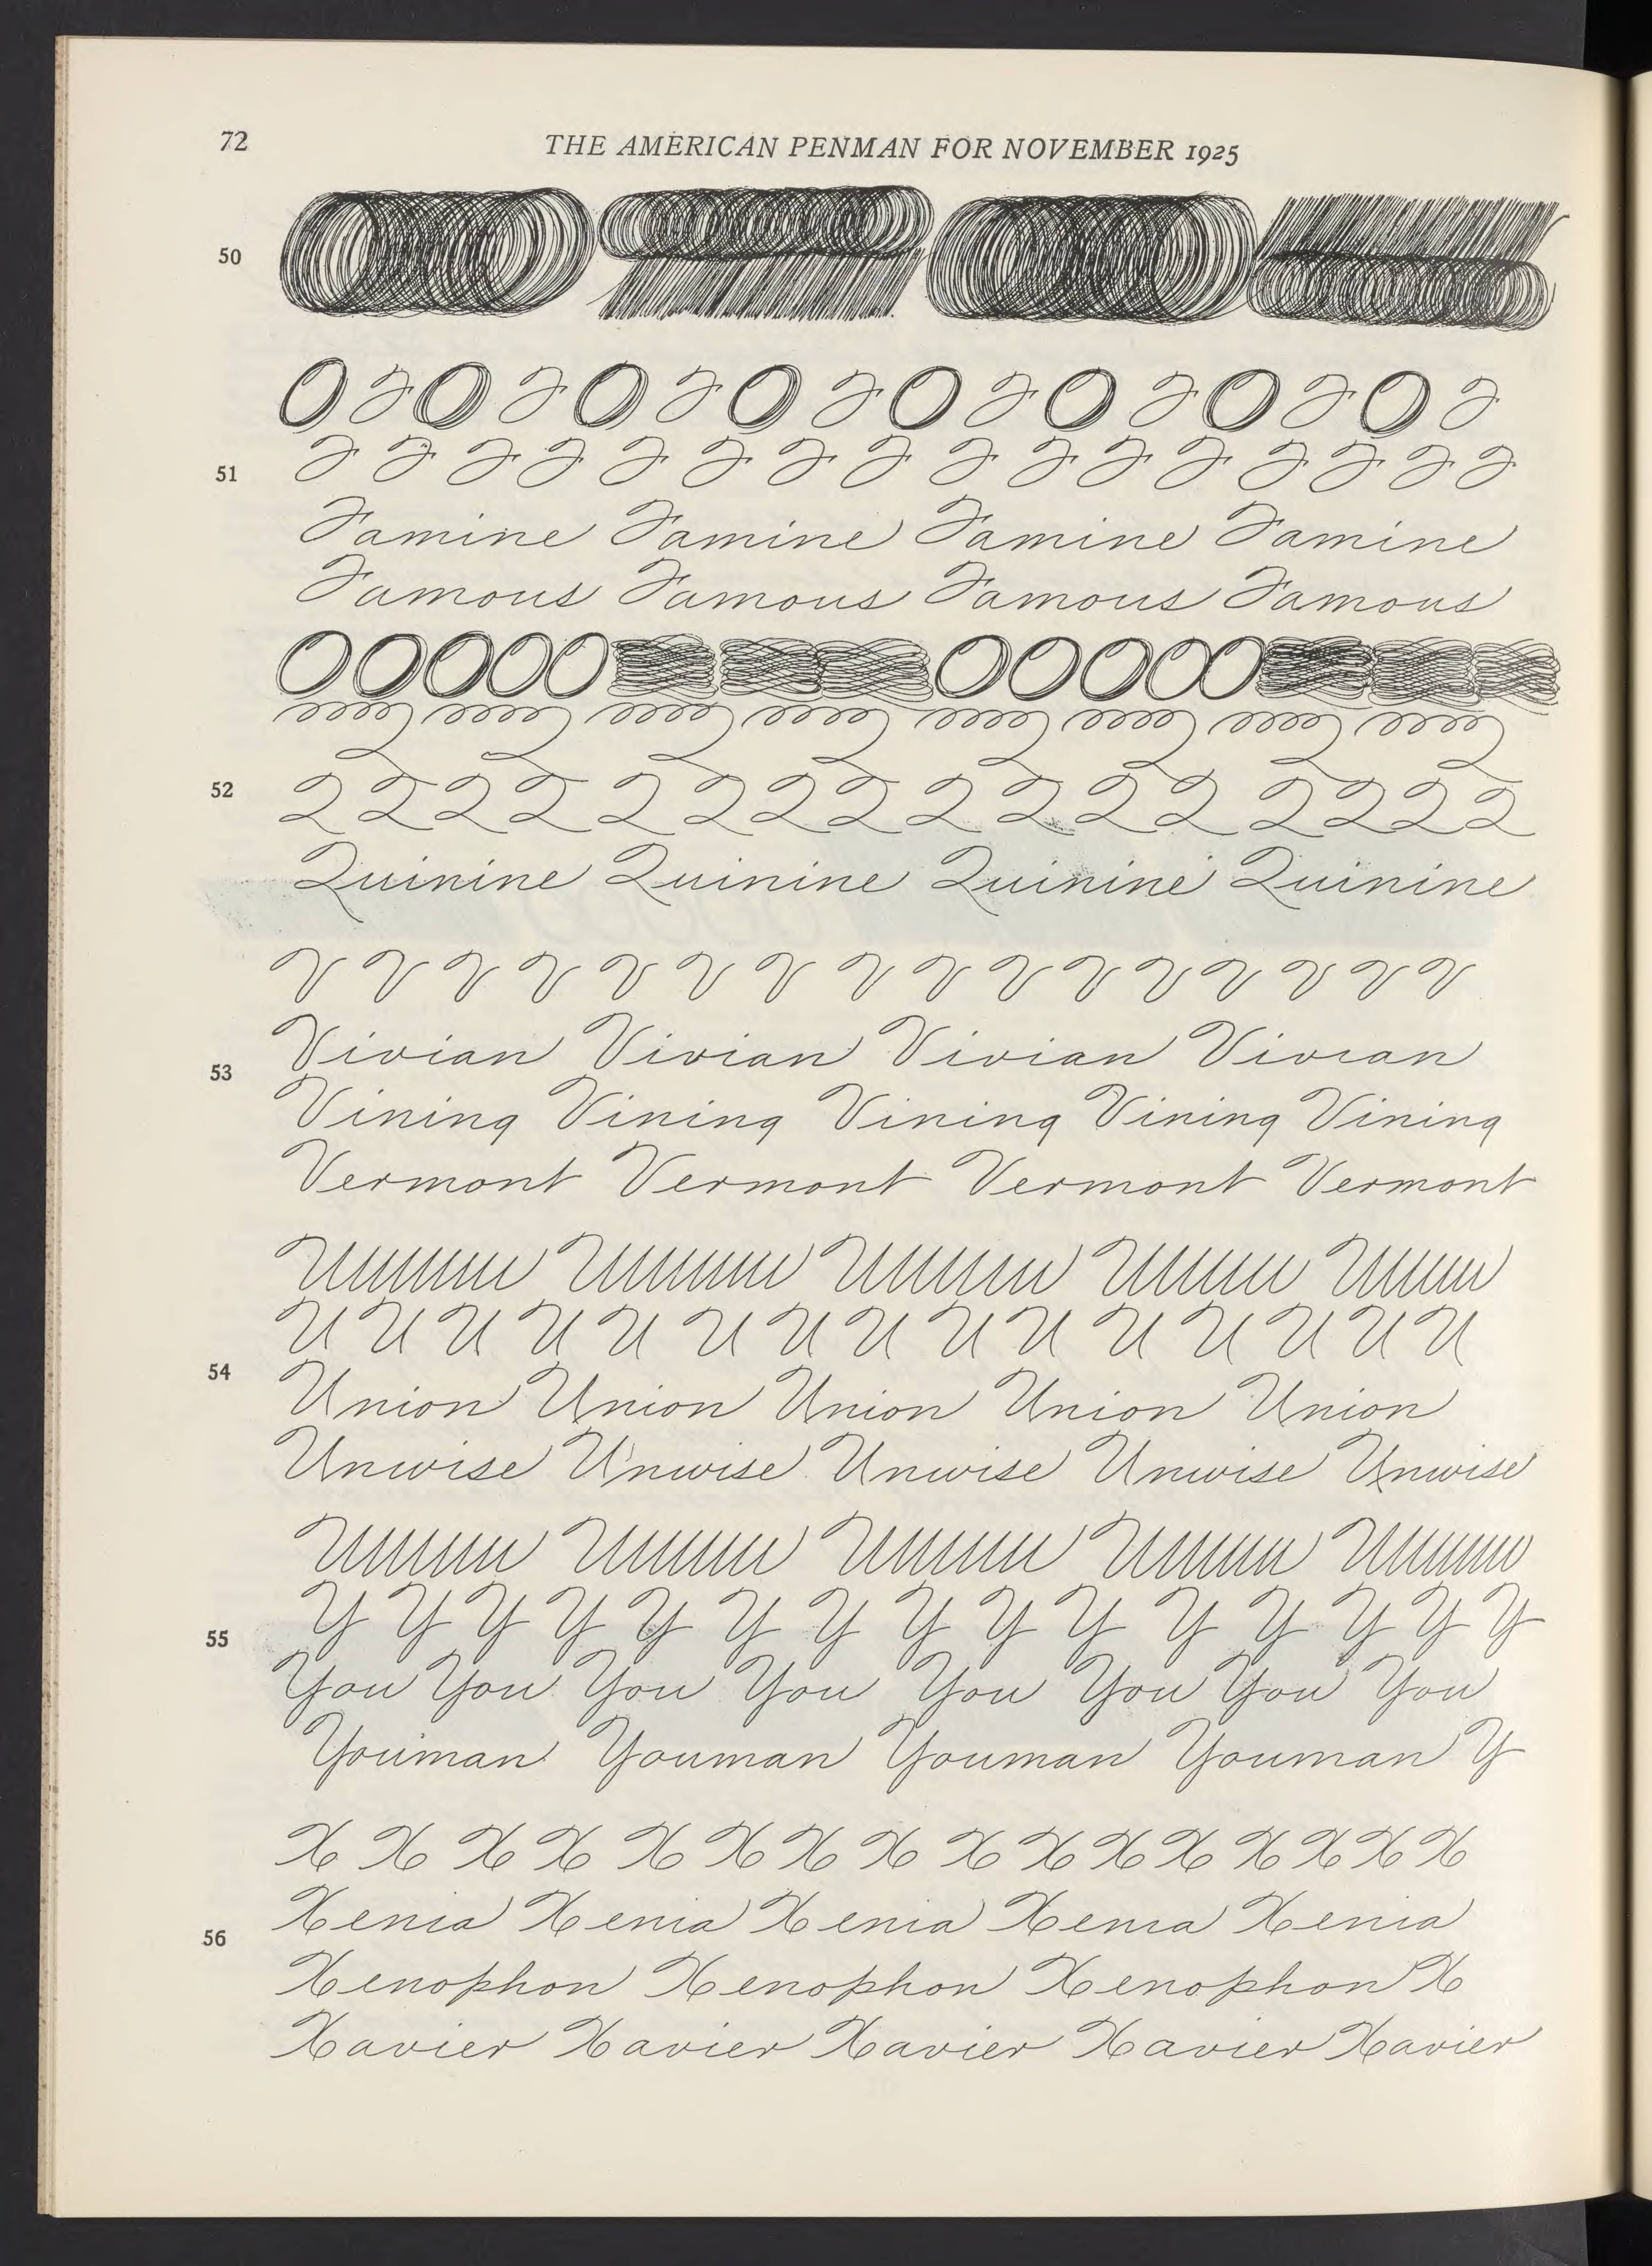 72 THE AMERICAN PENMAN FOR NOVEMBER 1925
50
O F O F O F O F O F O F O F O F
51 F F F F F F F F F F F F F F F F
Famine Famine Famine Famine
Famous Famous Famous Famous
O O O O O O O O O O
Q Q Q Q Q Q Q Q
52 Q Q Q Q Q Q Q Q Q Q Q Q Q Q Q Q
Quinine Quinine Quinine Quinine
V V V V V V V V V V V V V V V V
Vivian Vivian Vivian Vivian
53
Vining Vining Vining Vining Vining
Vermont Vermont Vermont Vermont
U U U U U U U U U U U U U U U
54
Union Union Union Union Union
Unwise Unwise Unwise Unwise Unwise
Y Y Y Y Y Y Y Y Y Y Y Y Y Y Y
55
You You You You You You You You
Youman Youman Youman Youman Y
X X X X X X X X X X X X X X X X
Xenia Xenia Xenia Xenia Xenia
56
Xenophon Xenophon Xenophon X
Xavier Xavier Xavier Xavier Xavier